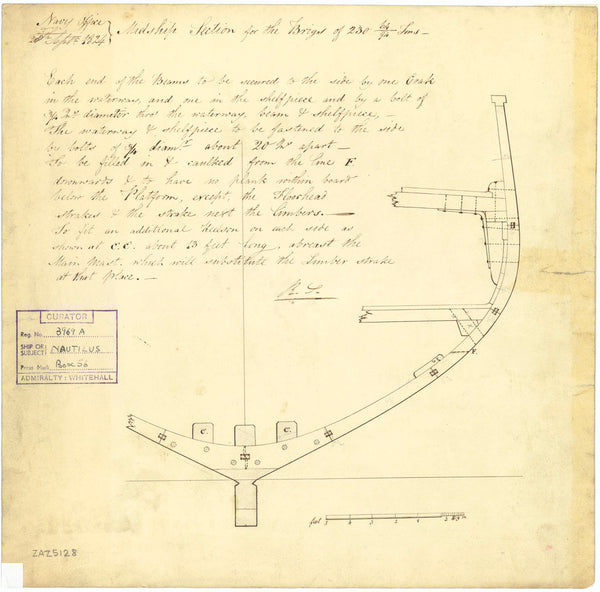 Navy Office
Septr. 1824
Midship Section for the Brigs of 230 64/94 Tons -
Each end of the Beams to be secured to the side by one Coak
in the waterway, and one in the shelfpiece and by a bolt of
3/4 In. diameter thro' the waterway, beam & shelfpiece, -
The waterway & shelfpiece to be fastened to the side
by bolts of 3/4 diamr. about 20 Ins. apart -
To be filled in & caulked from the line F
downwards & to have no plank within board
below the Platform, except, the Floorhead
strakes & the strake next the limbers. -
To fit an additional Keelson on each side as
shewn at C.C. about 3 feet long, abreast the
Main Mast, which will substitute the Limber strake
at that place. -
R. S.
CURATOR
Reg. No. 3969 A
SHIP OR SUBJECT: NAUTILUS
Press Mark Box 56
ADMIRALTY: WHITEHALL
F.
C. C.
feet
ZAZ5128